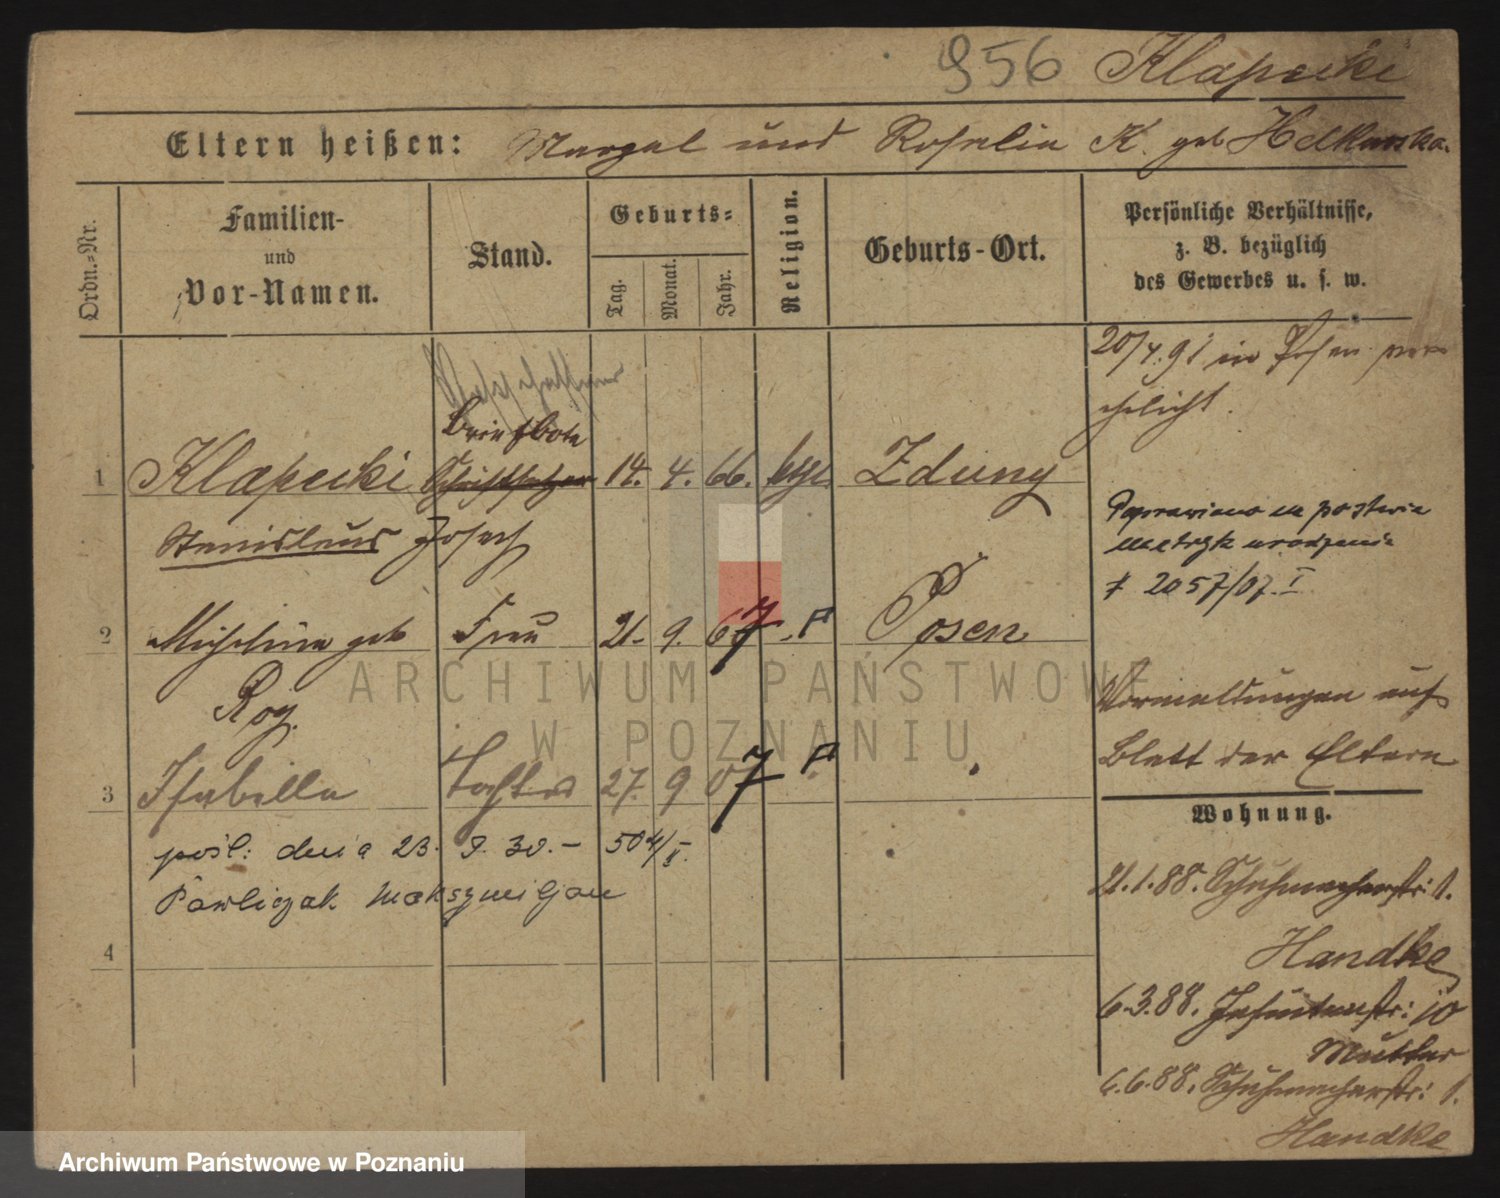 956 Klapecki
Eltern heißen: Margel und Rosalia K. geb
Ordn.-Nr.
Familien-
und
Vor-Namen.
Stand.
Geburts-
Tag.
Monat.
Jahr.
Religion.
Geburts-Ort.
Persönliche Verhältnisse,
z. B. bezüglich
des Gewerbes u. s. w.
20/4.91 in Posen ver
ehelicht.
Briefbote
1 Klapecki Schriftsetzer 14. 4. 66. ktl. Zduny
Stanislaus Josef
Poprawiono na postwie
metryk urodzenia
# 2057/07. I
2 Michelina geb Frau 21. 9. 67 Posen
Roy.
Vormeldungen auf
Blatt der Eltern
3 Isabella Tochter 27. 9 07
Wohnung.
pośl: dnia 23. 9. 30. – 504/II.
Pawliczak Maksymiljan
4
21.1.88. Schuhmacherstr: 1.
Handke
6.3.88. Jesuitenstr: 10
Mutter
6.6.88. Schuhmacherstr: 1.
Handke
ARCHIWUM PAŃSTWOWE
W POZNANIU
Archiwum Państwowe w Poznaniu